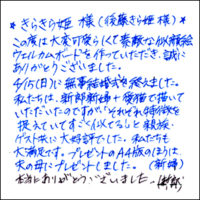 ★きらきら姫 様(後藤きら姫 様)
この度は大変可愛らしくて素敵な似顔絵
ウェルカムボードを作っていただき、誠に
ありがとうございました。
4/15(日)に無事結婚式を終えました。
私たちは、新郎新婦+愛猫で描いて
いただいたのですが、それぞれ特徴を
捉えていてすごく似てると親族・
ゲスト共に大好評でした。私たちも
大満足です。プレゼントのA4版のほうは
夫の母にプレゼントしました。(新婦)
本当にありがとうございました。